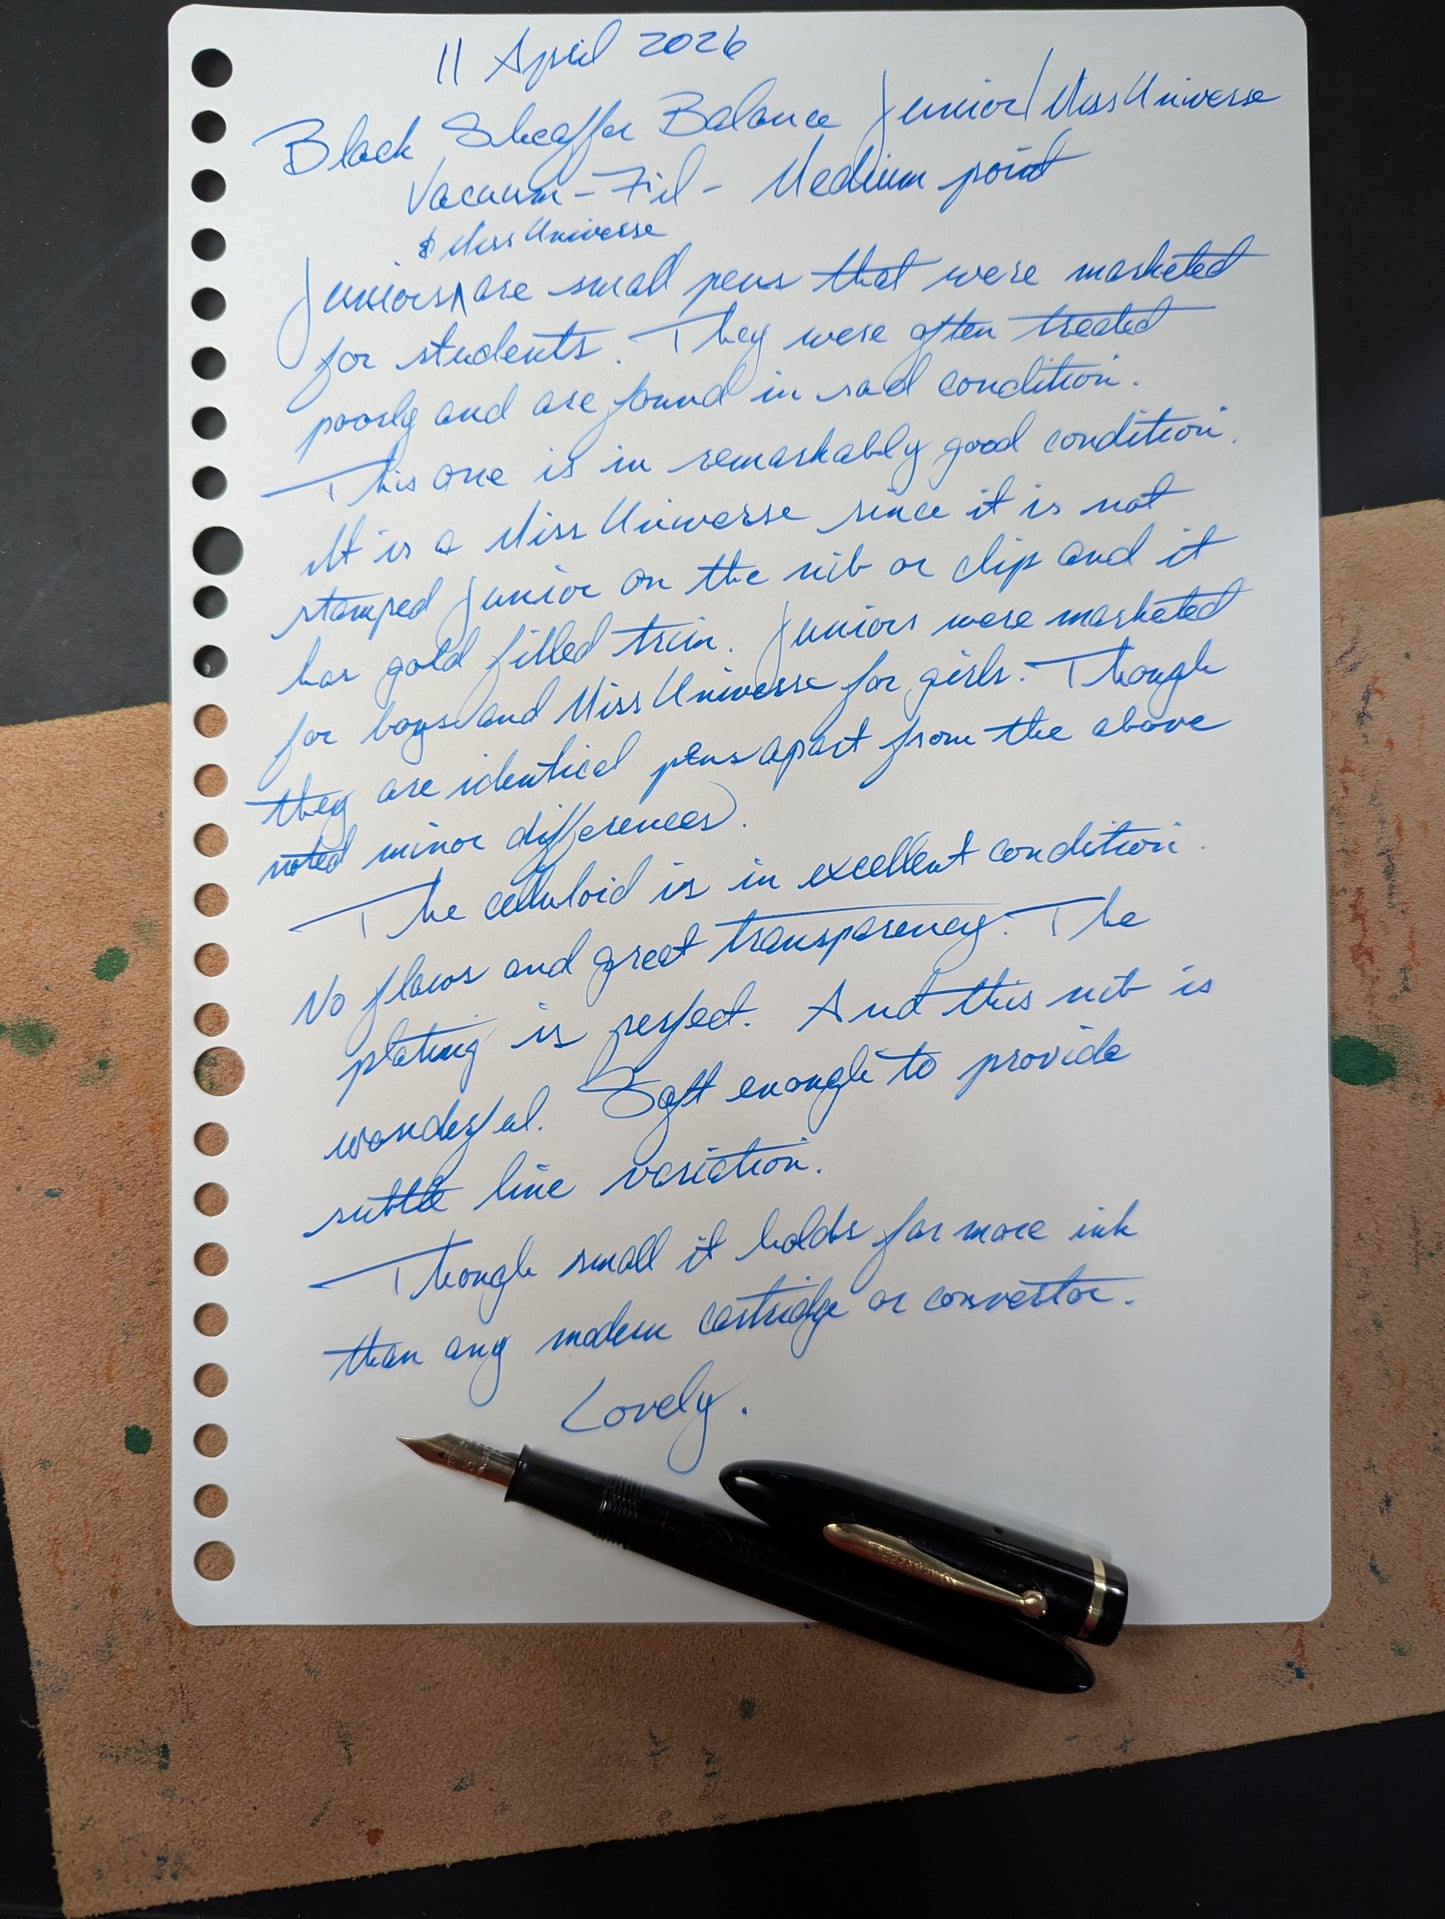 11 April 2026
Black Sheaffer Balance Junior/Miss Universe
Vacuum-Fil - Medium point
& Miss Universe
Juniors^are small pens that were marketed
for students. They were often treated
poorly and are found in sad condition.
This one is in remarkably good condition.
It is a Miss Universe since it is not
stamped Junior on the nib or clip and it
has gold filled trim. Juniors were marketed
for boys and Miss Universe for girls. Though
they are identical pens apart from the above
noted minor differences).
The celluloid is in excellent condition.
No flaws and great transparency. The
plating is perfect. And this nib is
wonderful. Soft enough to provide
subtle line variation.
Though small it holds far more ink
than any modern cartridge or convertor.
Lovely.